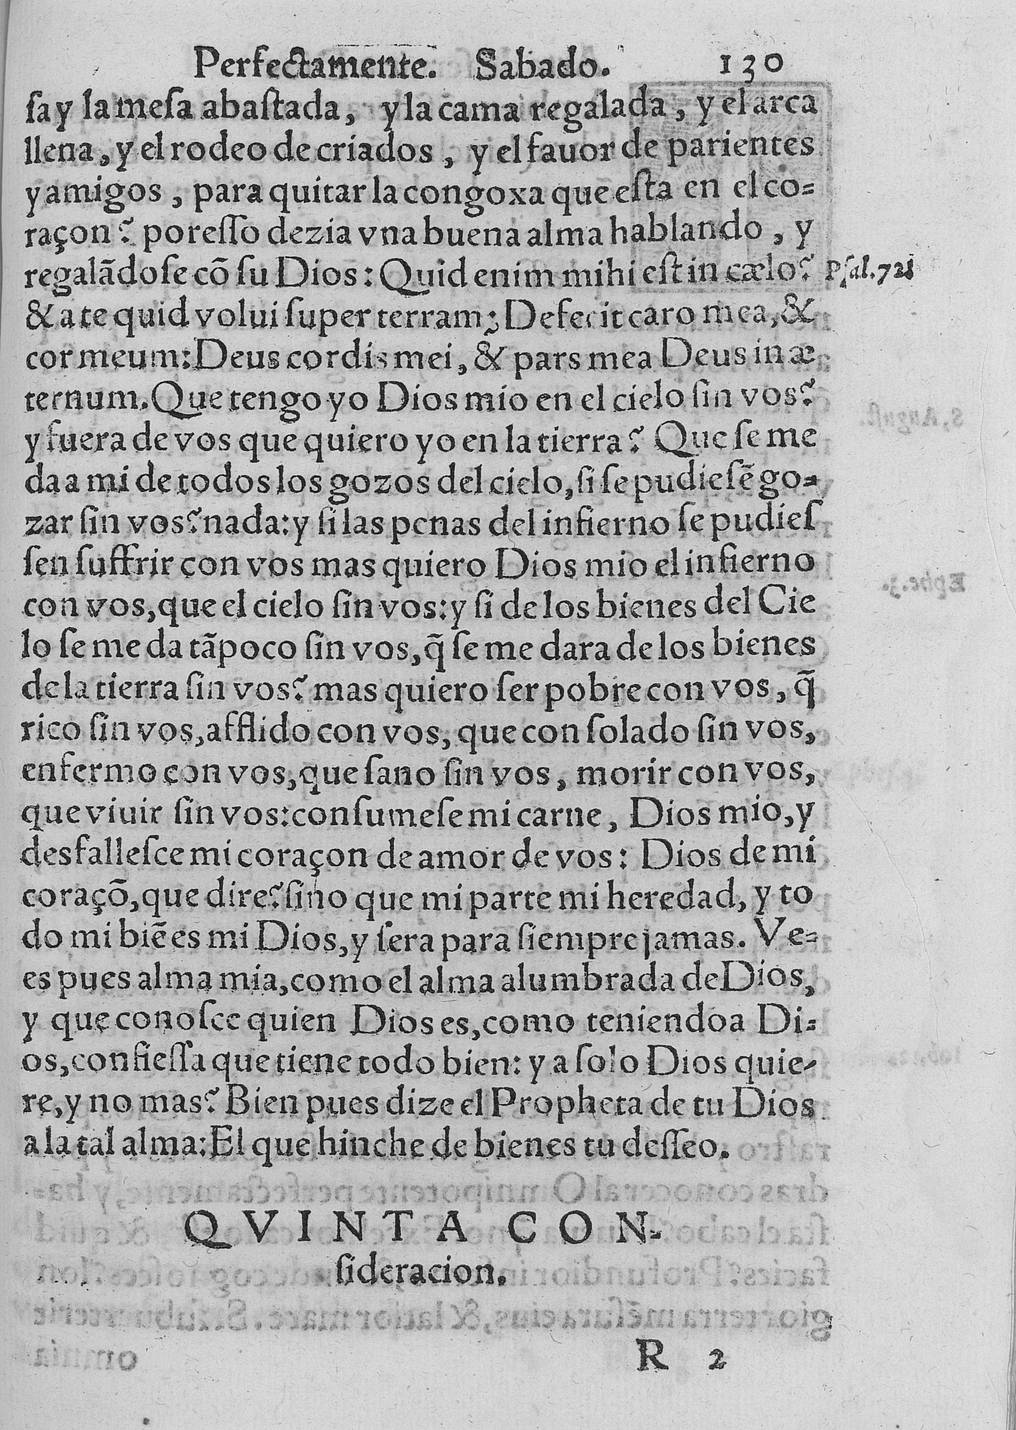 Perfectamente. Sabado. 130
ſa y la meſa abaſtada, y la cama regalada, y el arca
llena, y el rodeo de criados, y el fauor de parientes
y amigos, para quitar la congoxa que eſta en el co-
raçon? por eſſo dezia vna buena alma hablando, y
regalãdoſe cõ ſu Dios: Quid enim mihi eſt in cælo? Pſal. 72
& a te quid volui ſuper terram; Defecit caro mea, &
cor meum: Deus cordis mei, & pars mea Deus in æ
ternum. Que tengo yo Dios mio en el cielo ſin vos?
y fuera de vos que quiero yo en la tierra? Que ſe me
da a mi de todos los gozos del cielo, ſi ſe pudieſẽ go-
zar ſin vos? nada: y ſi las penas del infierno ſe pudieſ
ſen ſuffrir con vos mas quiero Dios mio el infierno
con vos, que el cielo ſin vos: y ſi de los bienes del Cie
lo ſe me da tãpoco ſin vos, q̃ ſe me dara de los bienes
de la tierra ſin vos? mas quiero ſer pobre con vos, q̃
rico ſin vos, afflido con vos, que conſolado ſin vos,
enfermo con vos, que ſano ſin vos, morir con vos,
que viuir ſin vos: conſumeſe mi carne, Dios mio, y
desfalleſce mi coraçon de amor de vos: Dios de mi
coraçõ, que dire? ſino que mi parte mi heredad, y to
do mi biẽ es mi Dios, y ſera para ſiempre jamas. Ve-
es pues alma mia, como el alma alumbrada de Dios,
y que conoſce quien Dios es, como teniendo a Di-
os, confieſſa que tiene todo bien: y a ſolo Dios quie-
re, y no mas? Bien pues dize el Propheta de tu Dios
a la tal alma: El que hinche de bienes tu deſſeo.
QVINTA CON-
ſideracion.
R 2